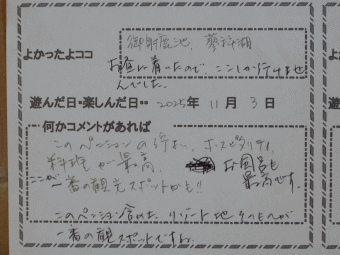 御射鹿池、蓼科湖
よかったよココ
お昼に着いたので、ここしか行けませ
んでした。
遊んだ日・楽しんだ日・・ 2025年 11月 3日
何かコメントがあれば
このペンションの佇まい、ホスピタリティ、
料理が最高、 お風呂も
ここが 最高です。
一番の観光スポットかも!!
このペンション含めた リゾート地そのものが
一番の観スポットですよ。